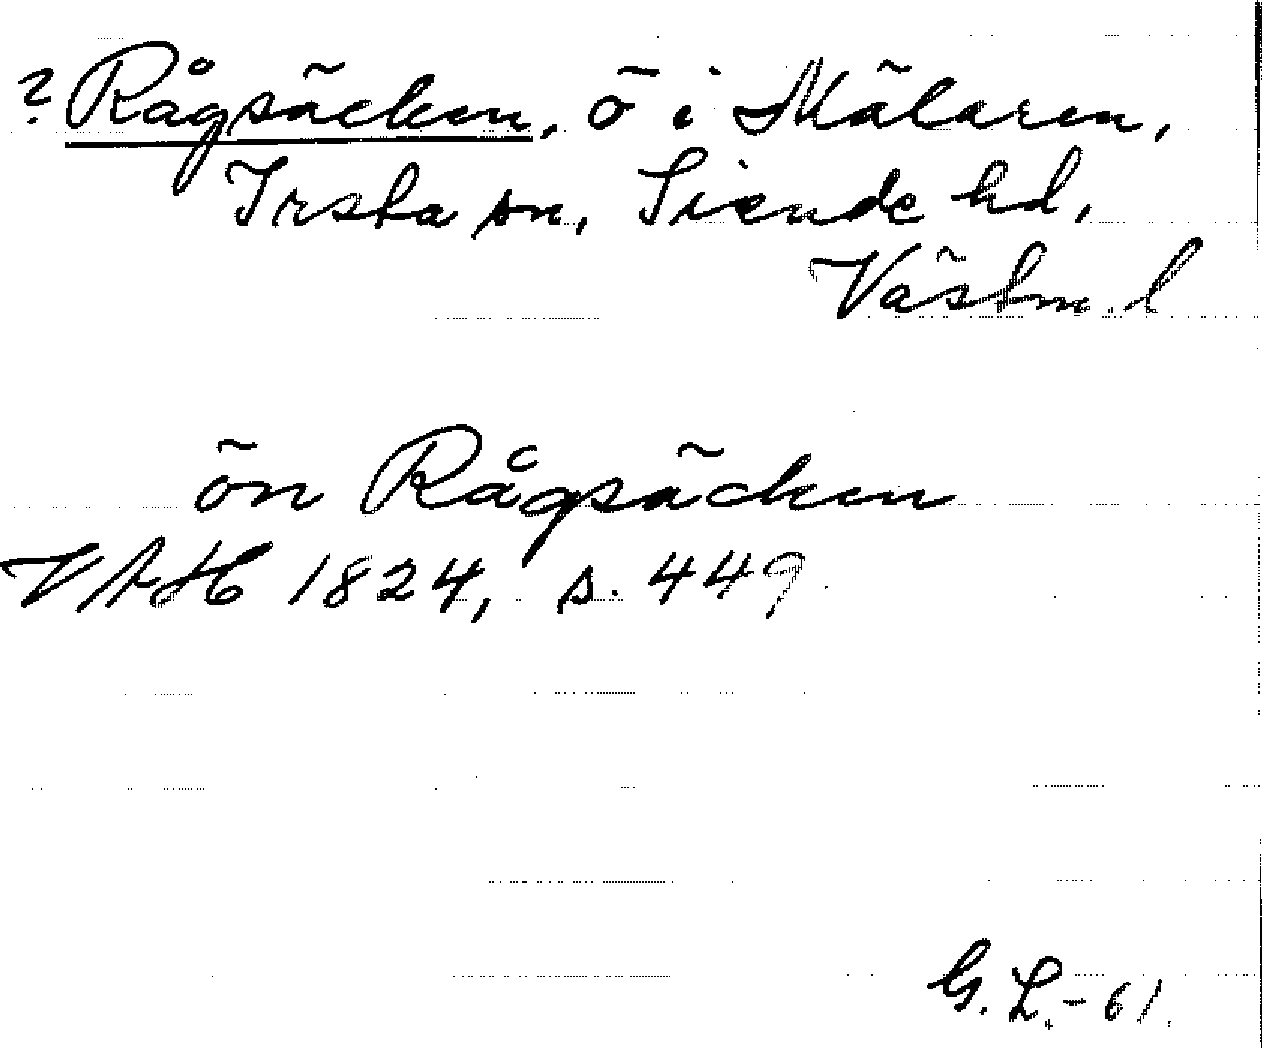 ? Rågsäcken, ö i Mälaren,
Irsta sn, Siende hd,
Västm. l
ön Rågsäcken
VAH 1824, s. 449
G. L. - 61.